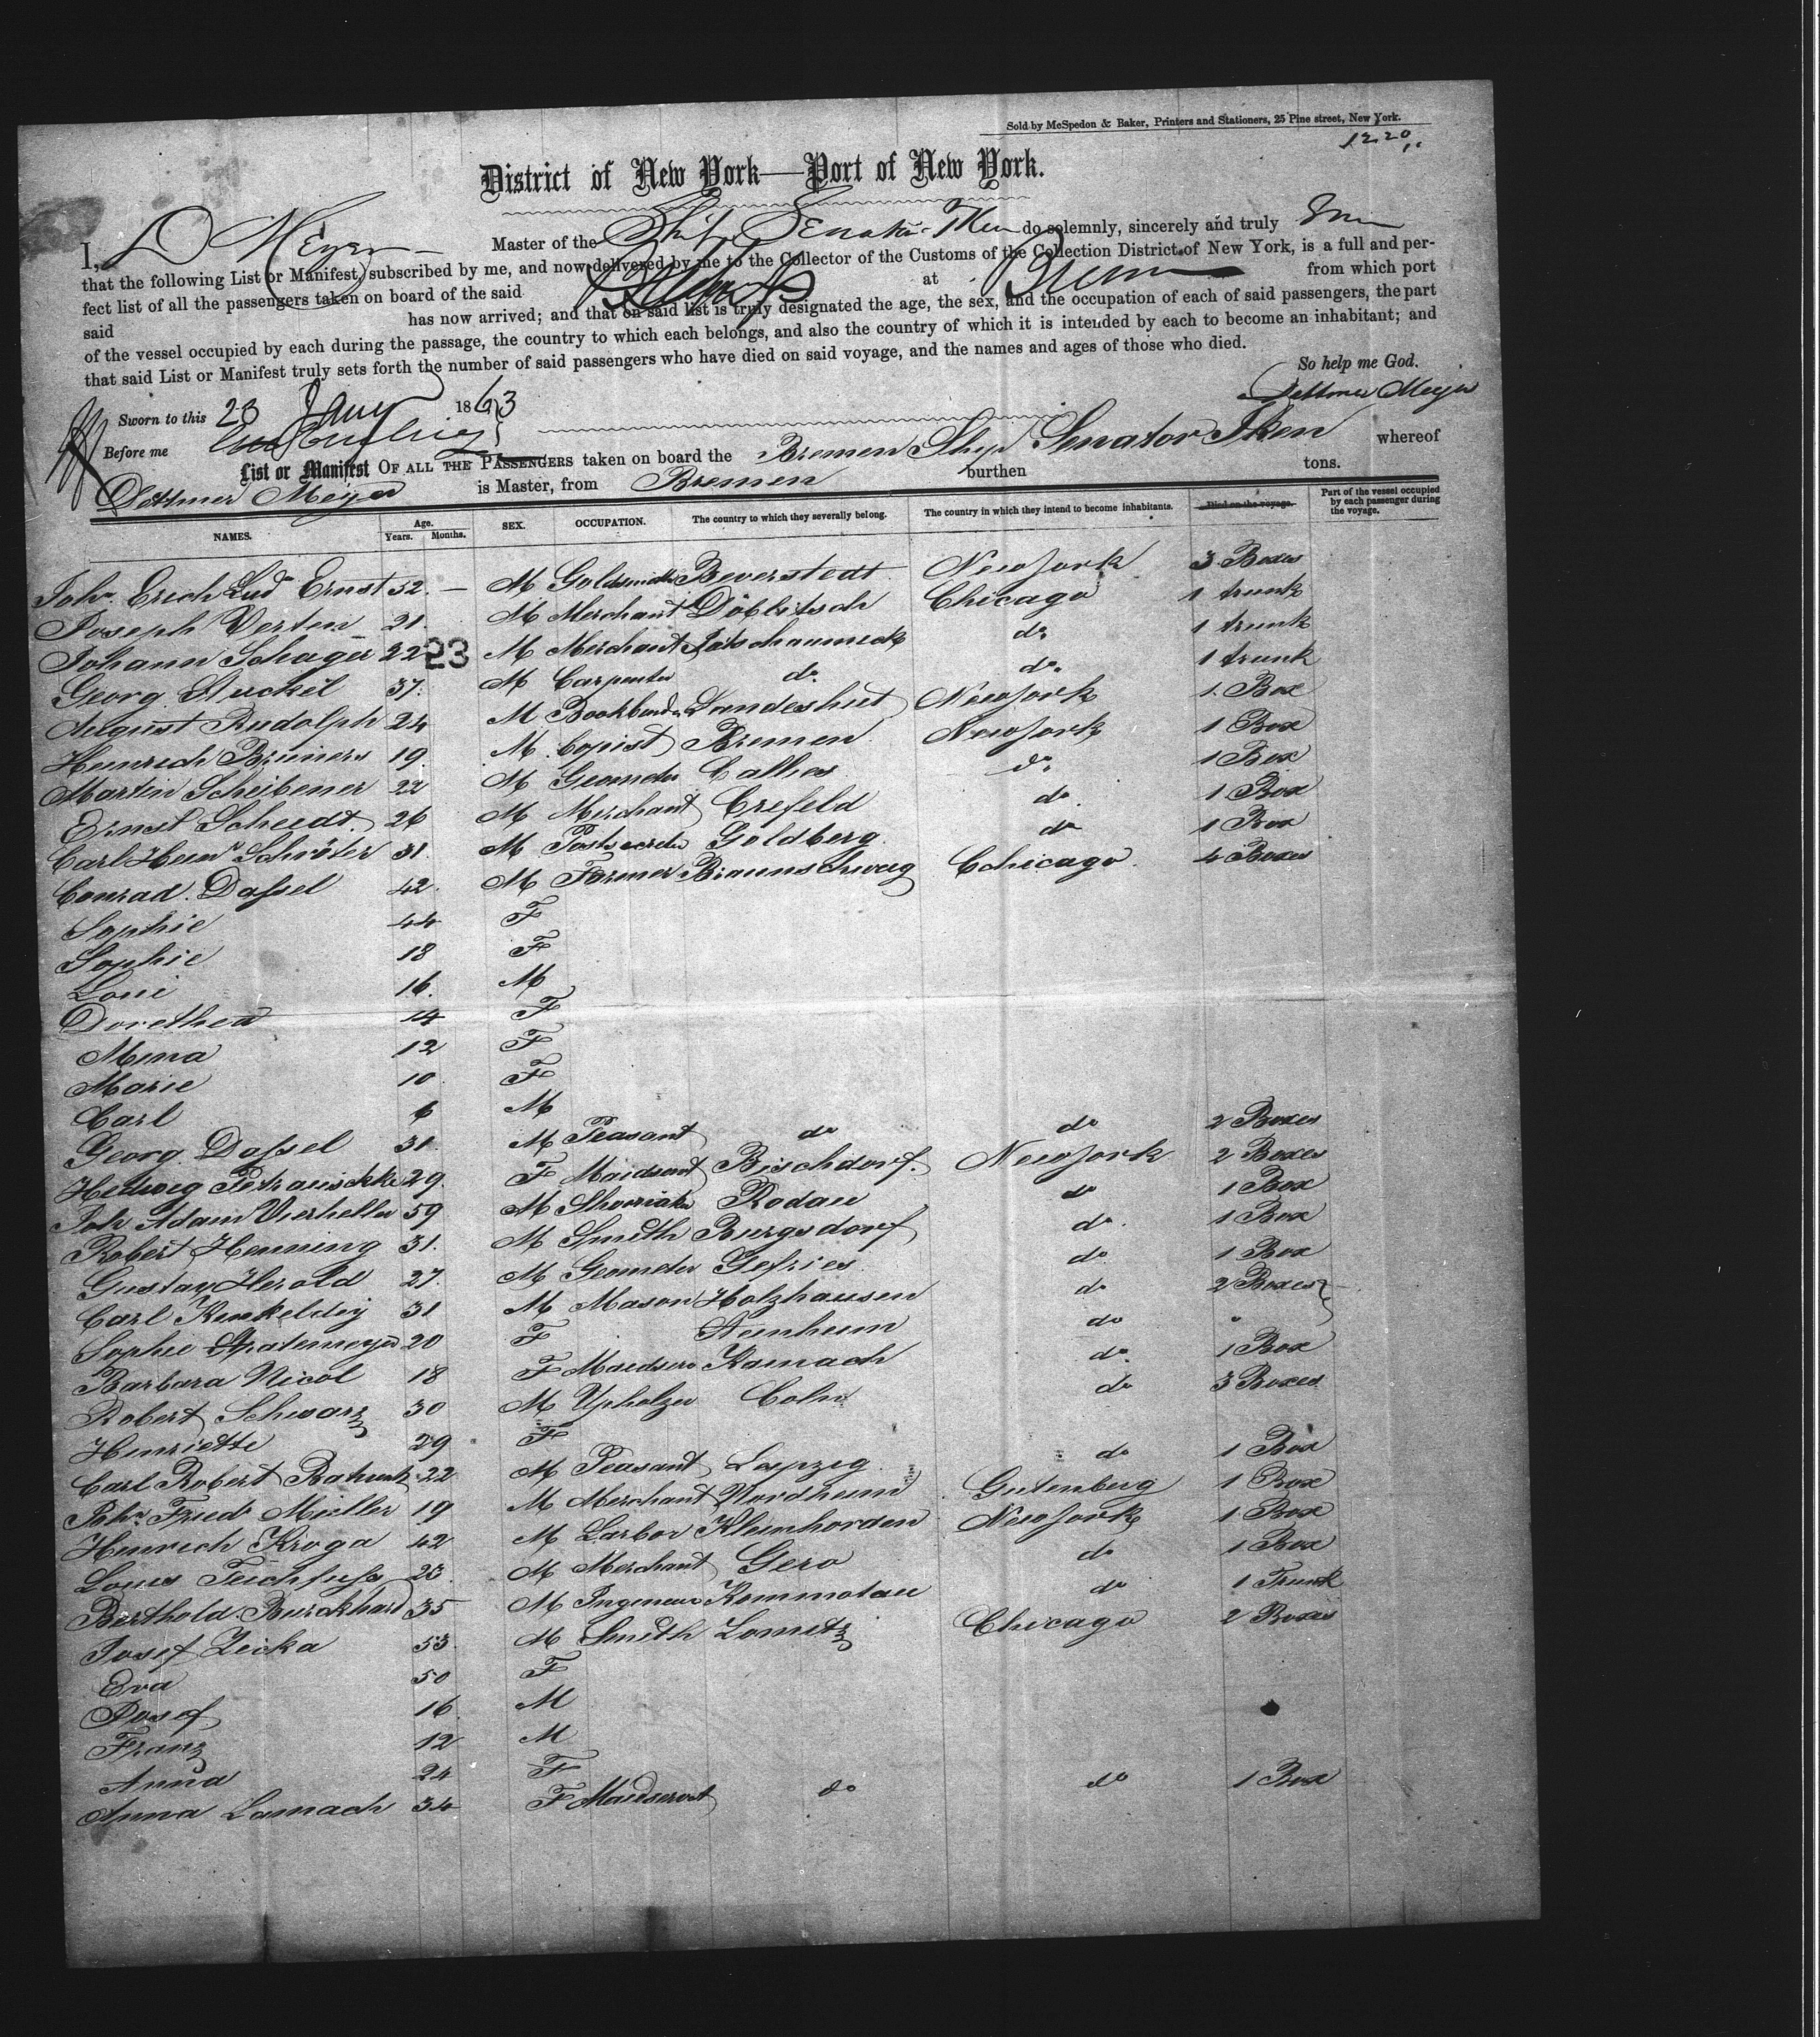 Sold by McSpedon & Baker, Printers and Stationers, 25 Pine street, New York.
District of New York—Port of New York.
I, D Meyer Master of the Ship Senator Iken do solemnly, sincerely and truly
that the following List or Manifest, subscribed by me, and now delivered by me to the Collector of the Customs of the Collection District of New York, is a full and per-
fect list of all the passengers taken on board of the said at Bremen from which port
said has now arrived; and that on said list is truly designated the age, the sex, and the occupation of each of said passengers, the part
of the vessel occupied by each during the passage, the country to which each belongs, and also the country of which it is intended by each to become an inhabitant; and
that said List or Manifest truly sets forth the number of said passengers who have died on said voyage, and the names and ages of those who died.
So help me God.
Dettmer Meyer
Sworn to this 23 Jany 1863
Before me
List or Manifest OF ALL THE PASSENGERS taken on board the Bremen Ship Senator Iken whereof
Dettmer Meyer is Master, from Bremen burthen tons.
NAMES. Age. Years. Months. SEX. OCCUPATION. The country to which they severally belong. The country in which they intend to become inhabitants. Died on the voyage. Part of the vessel occupied by each passenger during the voyage.
John Erich Lud Ernst 52. — M Goldsmith Beverstedt New York 3 Boxes
Joseph Verten 21. M Merchant Döblitsch Chicago 1 trunk
Johann Schager 22 23 M Merchant do 1 trunk
Georg Stuckil 37. M Carpenter do do 1 trunk
August Rudolph 24 M Bookbinder Landeshut New York 1 Box
Heinrich Bruners 19. M Copist Bremen New York 1 Box
Martin Scheibener 22 M Geometer Callies do 1 Box
Ernst Scheidt 26 M Merchant Crefeld do 1 Box
Carl Heinr Schröter 31. M Postsecreter Goldberg do 1 Box
Conrad Dassel 42. M Farmer Braunschweig Chicago 4 Boxes
Sophie 44 F
Sophie 18 F
Loui 16. M
Dorethea 14 F
Mina 12 F
Marie 10. F
Carl 6 M
Georg Dassel 31. M Peasant do do 2 Boxes
Hedwig Petrauschke 29. F Maidservt Bischdorf. New York 2 Boxes
Joh Adam Vierheller 59 M Rodau do 1 Box
Robert Henning 31. M Smith Burgsdorf do 1 Box
Gustav Herold 27. M Geometer Gefries do 1 Box
Carl Kunkeldey 31 M Mason Holzhausen do 2 Boxes
Sophie Statemeyer 20 F Steinheim do "
Barbara Nicol 18 F Maidserv Kainach do 1 Box
Robert Schwarz 30 M Upholzer Coln do 3 Boxes
Henriette 29 F
Carl Robert 22 M Peasant Leipzig do 1 Box
John Friedr Müller 19 M Merchant Nordheim Gutenberg 1 Box
Heinrich Kroga 42 M Larbor Kleinhorden New York 1 Box
Louis Teichfuss 23. M Merchant Gera do 1 Box
Berthold Burckhard 35 M Ingenieur Kommotau do 1 Trunk
Josef Zicka 53. M Smith Lometz Chicago 2 Boxes
Eva 50 F
Josef 16. M
Franz 12 M
Anna 24 F
Anna Lamach 34 F Maidservt do do 1 Box